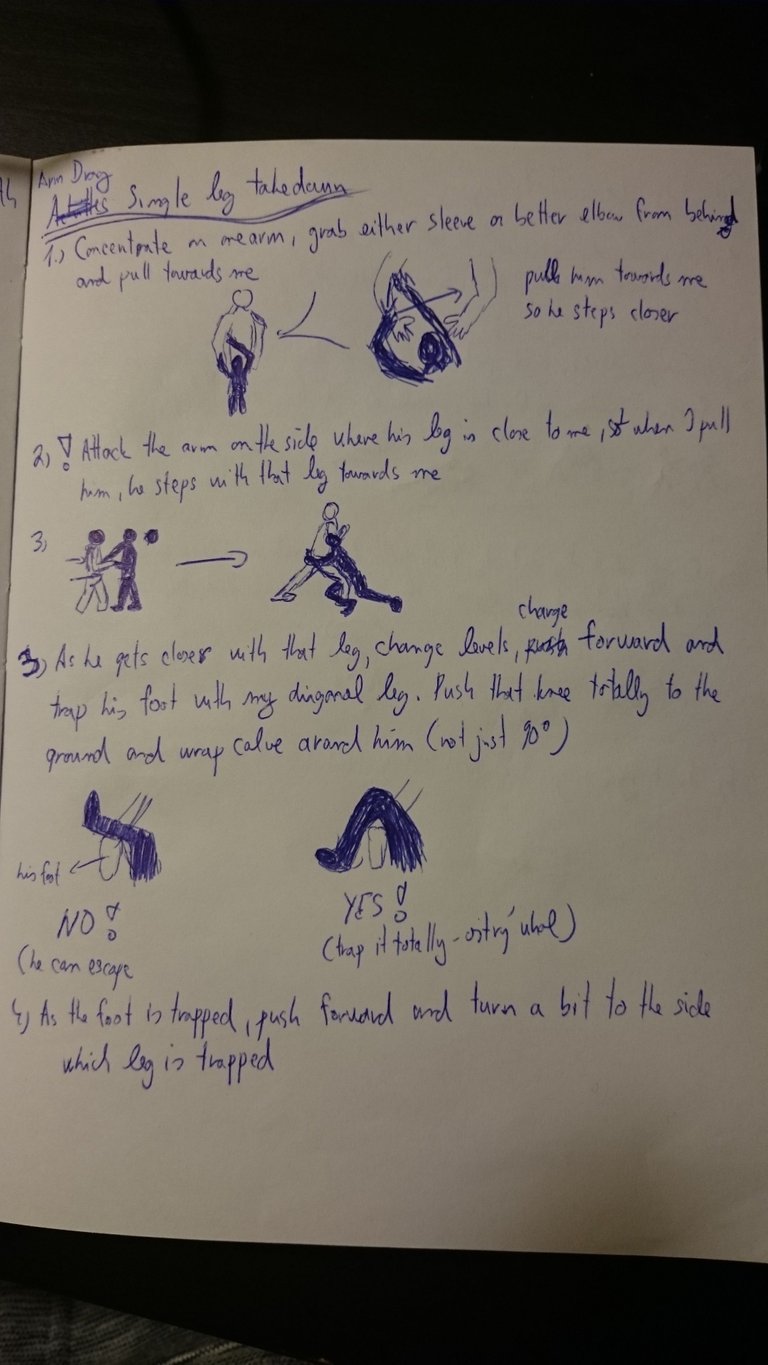 Arm Drag
Achilles Single leg takedown
1.) Concentrate on one arm, grab either sleeve or better elbow from behind
and pull towards me
pull him towards me
so he steps closer
2) ! Attack the arm on the side where his leg is close to me, so when I pull
him, he steps with that leg towards me
3)
change
3) As he gets closer with that leg, change levels, push forward and
trap his foot with my diagonal leg. Push that knee totally to the
ground and wrap calve around him (not just 90°)
his foot
NO!
YES!
(he can escape
(trap it totally - ostrý úhel)
4) As the foot is trapped, push forward and turn a bit to the side
which leg is trapped